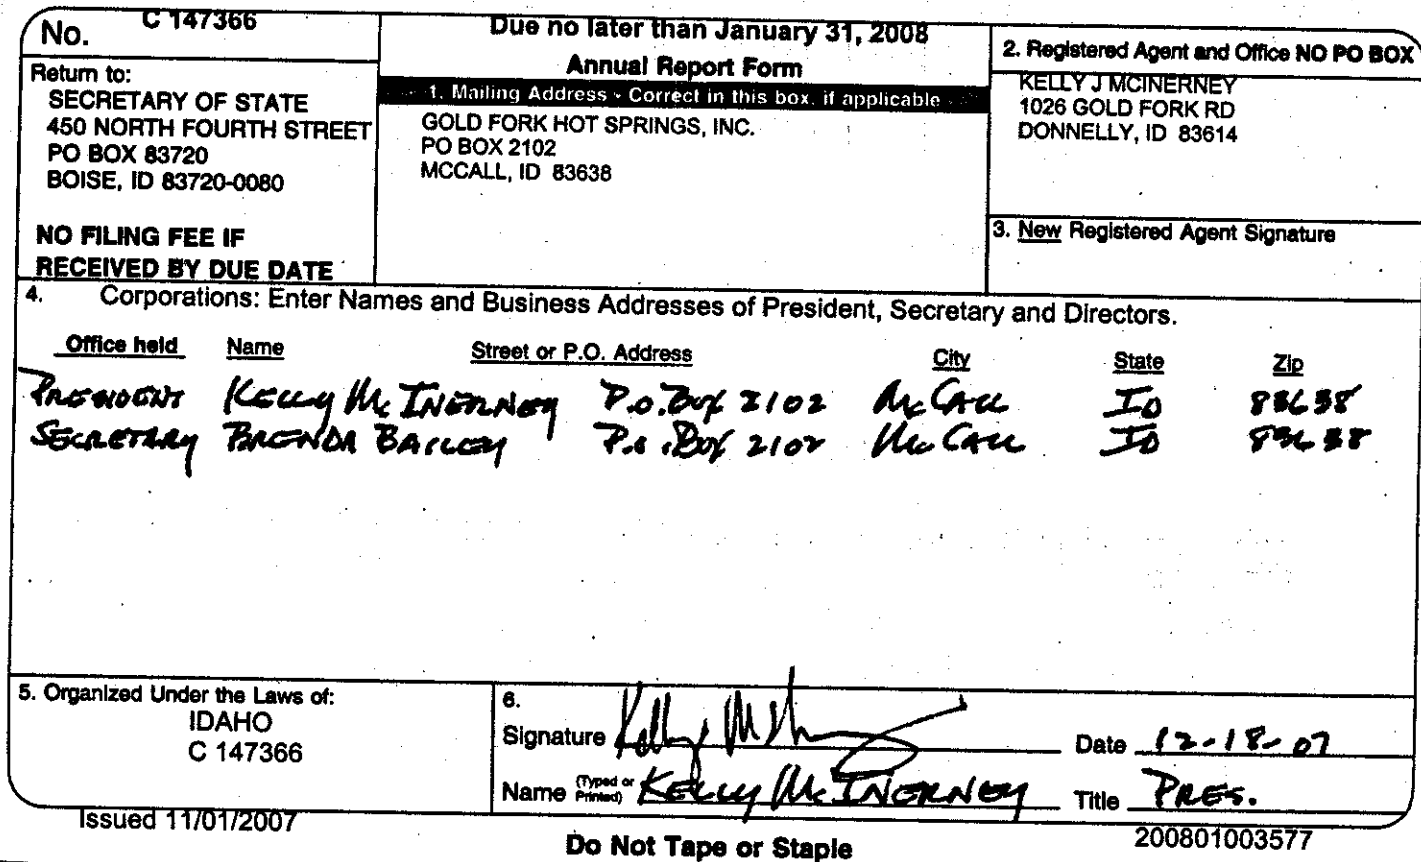 No. C 147366
Return to:
SECRETARY OF STATE
450 NORTH FOURTH STREET
PO BOX 83720
BOISE, ID 83720-0080
NO FILING FEE IF
RECEIVED BY DUE DATE
Due no later than January 31, 2008
Annual Report Form
1. Mailing Address - Correct in this box, if applicable
GOLD FORK HOT SPRINGS, INC.
PO BOX 2102
MCCALL, ID 83638
2. Registered Agent and Office NO PO BOX
KELLY J MCINERNEY
1026 GOLD FORK RD
DONNELLY, ID 83614
3. New Registered Agent Signature
4. Corporations: Enter Names and Business Addresses of President, Secretary and Directors.
Office held Name Street or P.O. Address City State Zip
PRESIDENT KELLY McINERNEY P.O. Box 2102 McCALL ID 83638
SECRETARY BRENDA BAILEY P.O. Box 2102 McCALL ID 83638
5. Organized Under the Laws of:
IDAHO
C 147366
6.
Signature Kelly McInerney Date 12-18-07
Name (Typed or Printed) KELLY McINERNEY Title PRES.
Issued 11/01/2007
Do Not Tape or Staple
200801003577